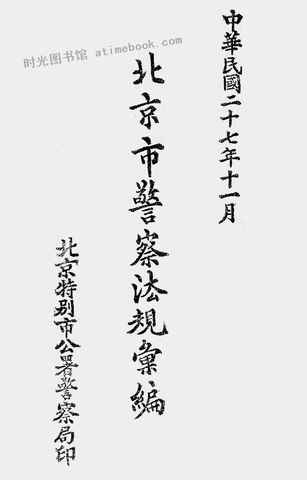 中華民國二十七年十一月
北京市警察法規彙編
北京特别市公署警察局印
时光图书馆 atimebook.com